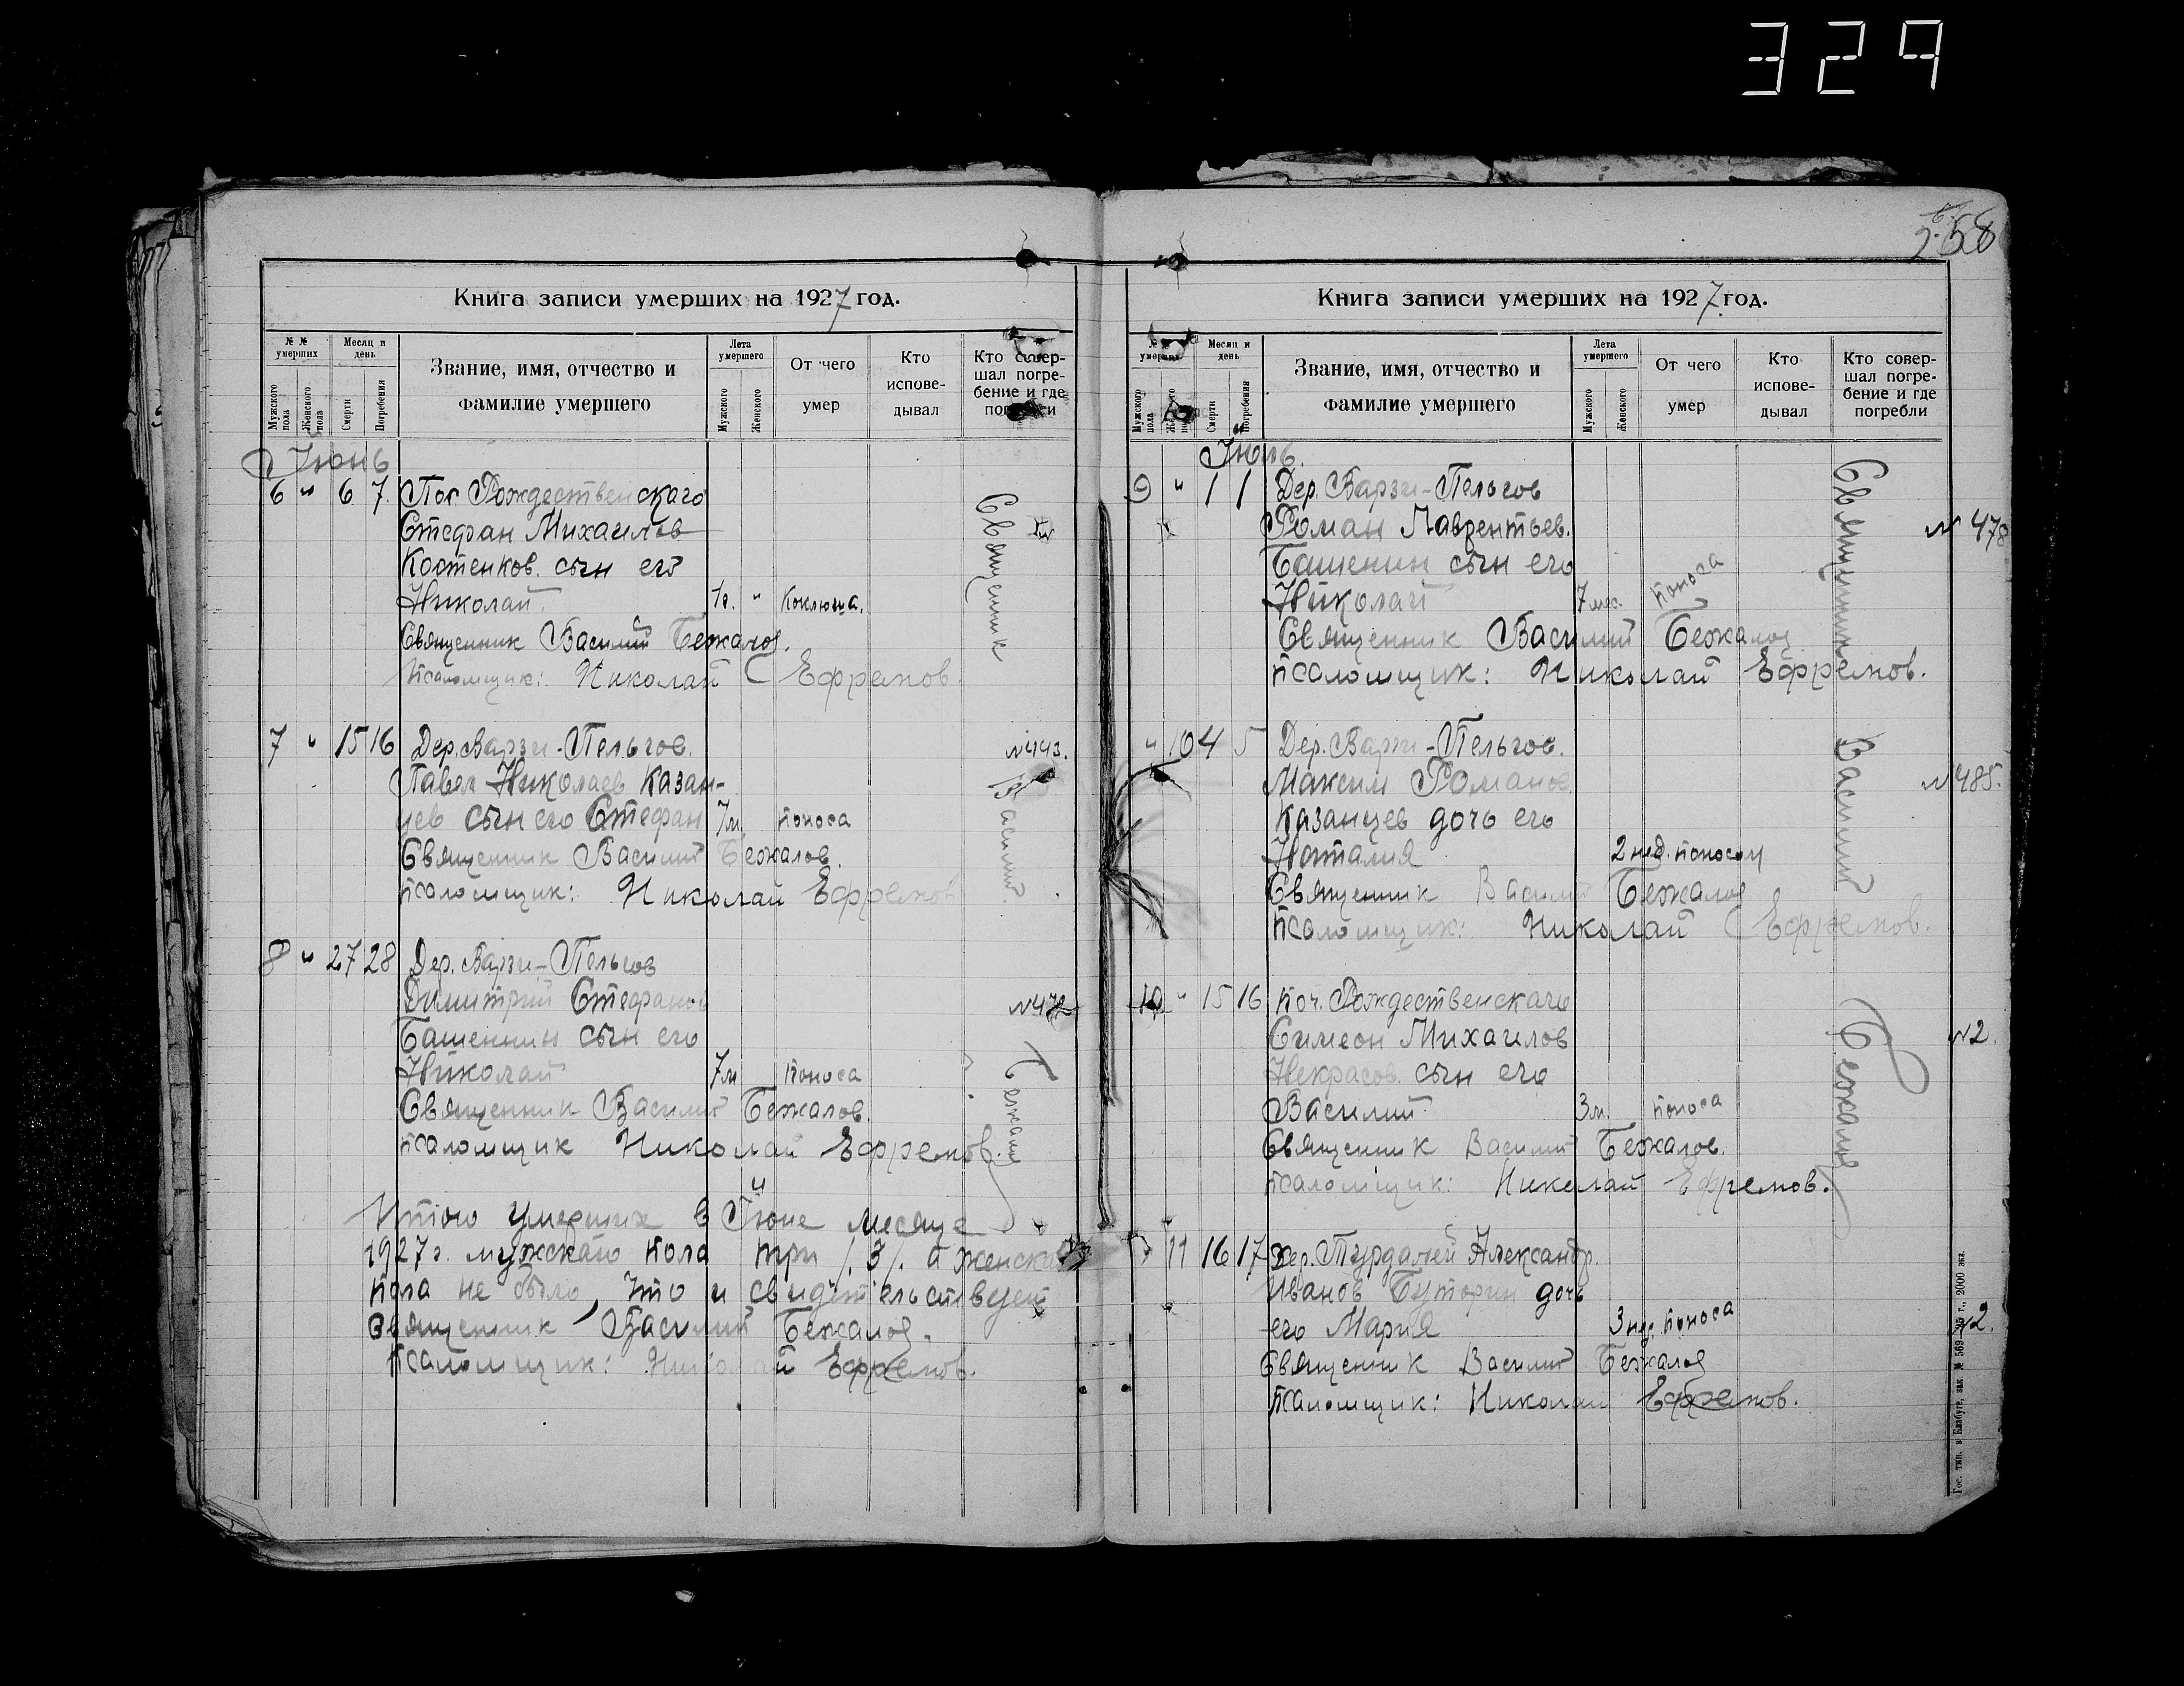 329
258
Книга записи умерших на 1927 год.
№ № умерших
Месяц и день
Звание, имя, отчество и фамилие умершего
Лета умершего
От чего умер
Кто исповедывал
Кто совершал погребение и где погребли
Мужского пола
Женского пола
Смерти
Погребения
Мужского
Женского
Июнь
6 " 6 7. Пос. Рождественскаго
Стефан Михаилов
Костенков. сын его
Николай. 1г. " Коклюша.
Священник Василий Бежалов.
Псаломщик: Николай Ефремов.
7 " 15 16 Дер. Варзи-Пельгов. №443.
Павел Николаев Казан-
цев сын его Стефан 7м. поноса
Священник Василий Бежалов.
псаломщик: Николай Ефремов
8 " 27 28 Дер. Варзи-Пельгов
Димитрий Стефанов №472
Башенин сын его
Николай 7м поноса
Священник Василий Бежалов.
псаломщик Николай Ефремов.
Итого умерших в Июне месяце
1927г. мужскаго пола три /3/. а женска
пола не было, что и свидетельствует
Священник Василий Бежалов.
Псаломщик: Николай Ефремов.
Священник Василий Бежалов
Книга записи умерших на 1927 год.
№ умерших
Месяц и день
Звание, имя, отчество и фамилие умершего
Лета умершего
От чего умер
Кто исповедывал
Кто совершал погребение и где погребли
Мужского пола
Смерти
Погребения
Мужского
Женского
Июль.
9 " 1 1 Дер. Варзи-Пельгов
Роман Лаврентьев. №478
Башенин сын его
Николай 7 мес. поноса
Священник Василий Бежалов
псаломщик: Николай Ефремов.
" 10 4 5 Дер. Варзи-Пельгов.
Максим Романов №485.
Казанцев дочь его
Наталия 2 нед. поносом
Священник Василий Бежалов
псаломщик: Николай Ефремов.
10 " 15 16 поч. Рождественскаго
Симеон Михаилов №2.
Некрасов. сын его
Василий 3м. поноса
Священник Василий Бежалов.
псаломщик: Николай Ефремов.
11 16 17 Дер. Турдалей Александр.
Иванов Буторин дочь
его Мария 3 нед. поноса №2.
Священник Василий Бежалов
псаломщик: Николай Ефремов.
Священник Василий Бежалов
Гос. тип. в Елабуге, зак № 569 г., 2000 экз.